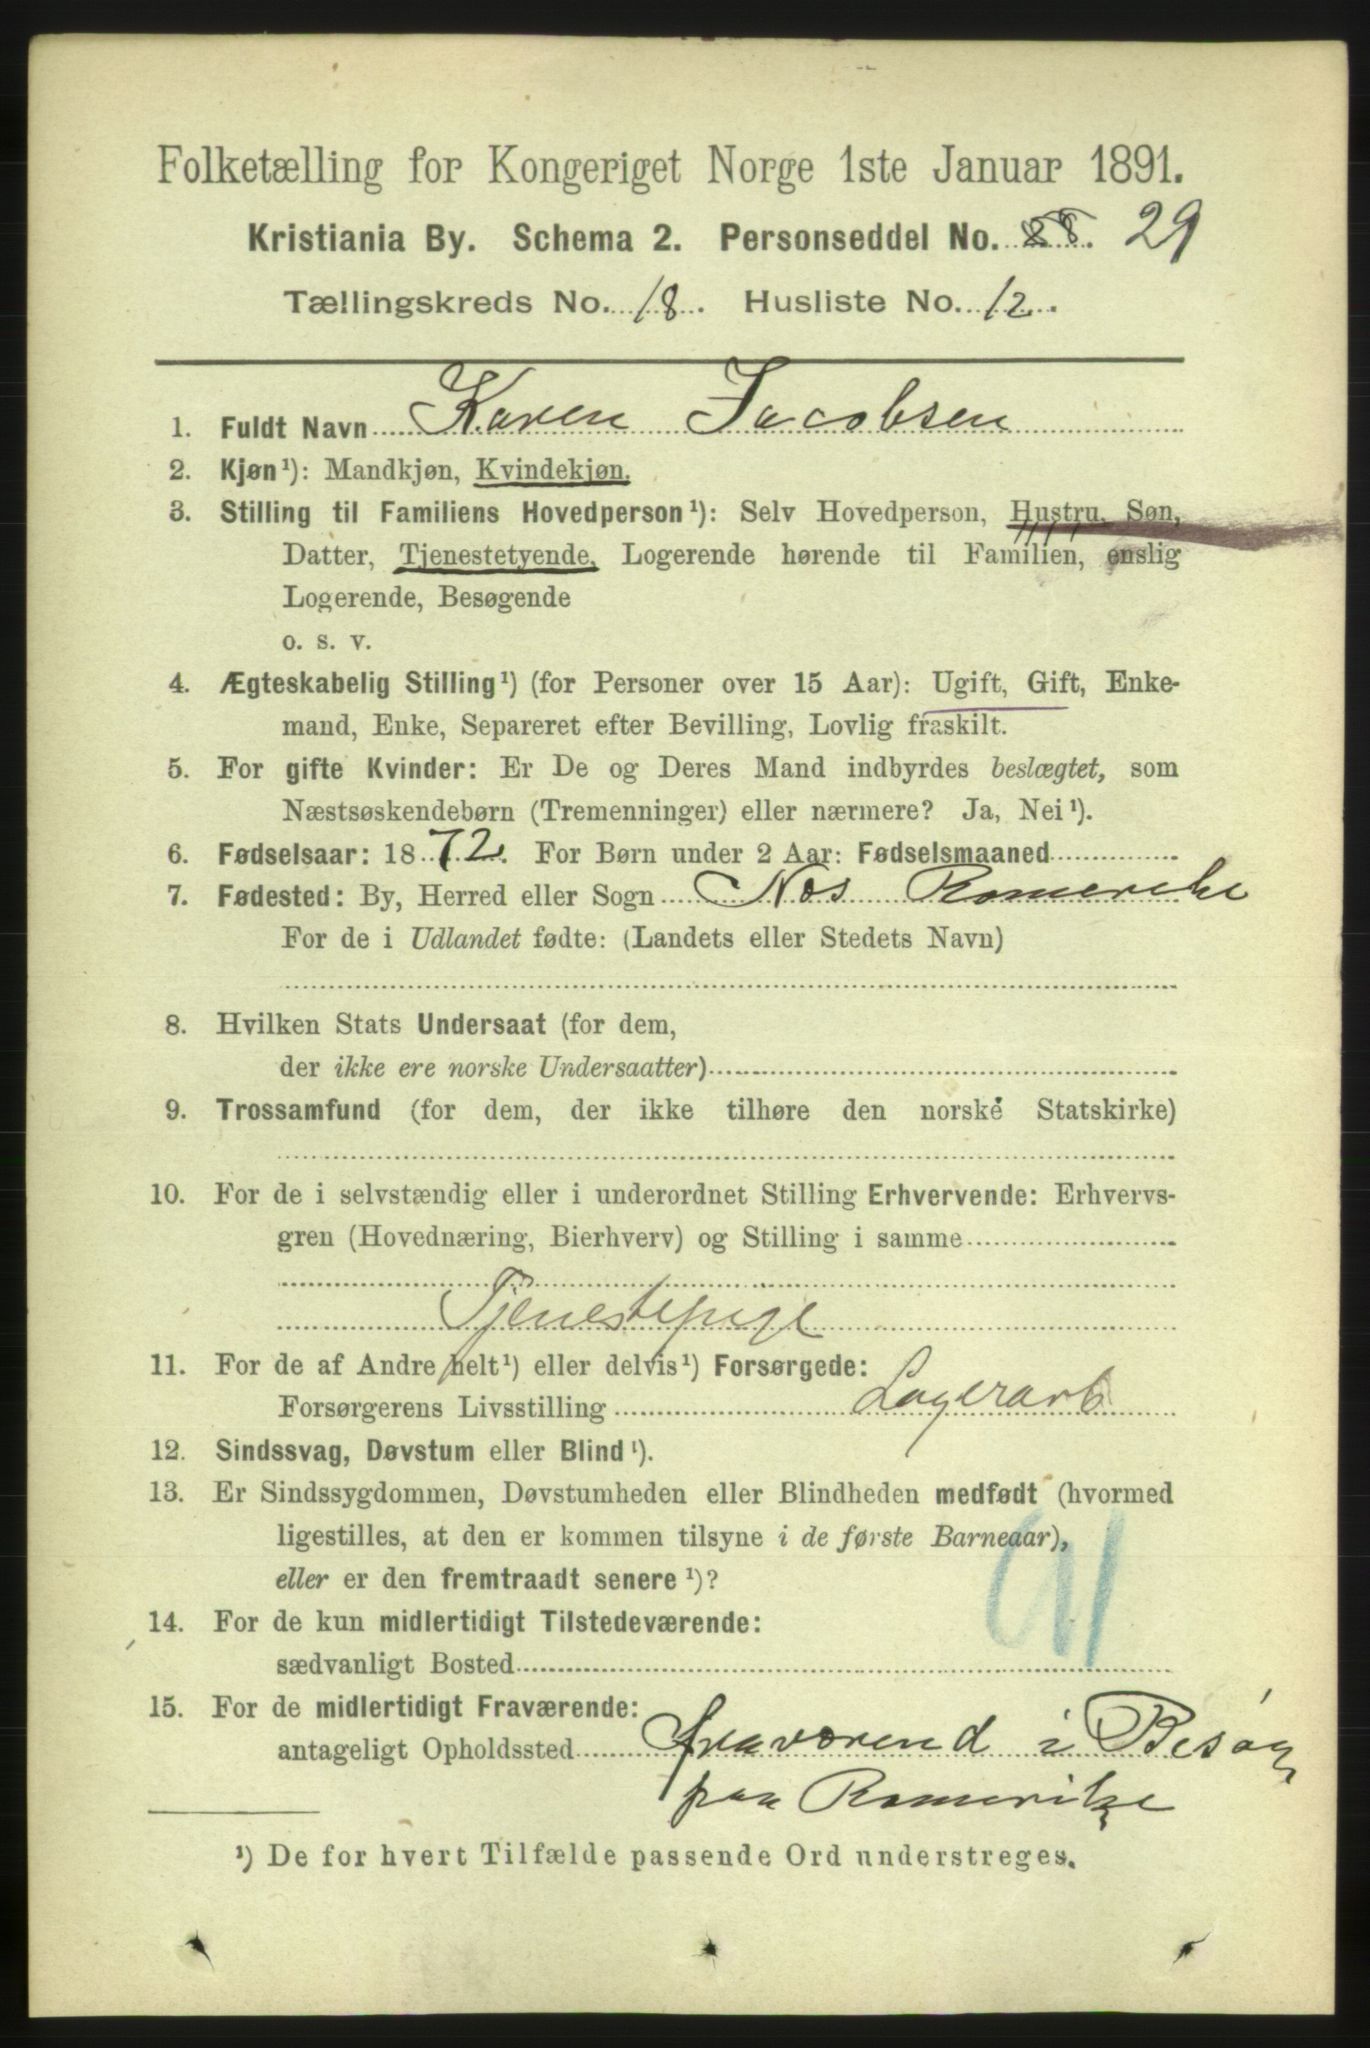 Folketælling for Kongeriget Norge 1ste Januar 1891.
Kristiania By. Schema 2. Personseddel No. 28. 29
Tællingskreds No. 18. Husliste No. 12.
1. Fuldt Navn Karen Jacobsen
2. Kjøn¹): Mandkjøn, Kvindekjøn.
3. Stilling til Familiens Hovedperson¹): Selv Hovedperson, Hustru, Søn,
Datter, Tjenestetyende, Logerende hørende til Familien, enslig
Logerende, Besøgende
o. s. v.
4. Ægteskabelig Stilling¹) (for Personer over 15 Aar): Ugift, Gift, Enke-
mand, Enke, Separeret efter Bevilling, Lovlig fraskilt.
5. For gifte Kvinder: Er De og Deres Mand indbyrdes beslægtet, som
Næstsøskendebørn (Tremenninger) eller nærmere? Ja, Nei¹).
6. Fødselsaar: 1872. For Børn under 2 Aar: Fødselsmaaned
7. Fødested: By, Herred eller Sogn Nes Romerike
For de i Udlandet fødte: (Landets eller Stedets Navn)
8. Hvilken Stats Undersaat (for dem,
der ikke ere norske Undersaatter)
9. Trossamfund (for dem, der ikke tilhøre den norske Statskirke)
10. For de i selvstændig eller i underordnet Stilling Erhvervende: Erhvervs-
gren (Hovednæring, Bierhverv) og Stilling i samme
Tjenestepige
11. For de af Andre helt¹) eller delvis¹) Forsørgede:
Forsørgerens Livsstilling Lagerarb
12. Sindssvag, Døvstum eller Blind¹).
13. Er Sindssygdommen, Døvstumheden eller Blindheden medfødt (hvormed
ligestilles, at den er kommen tilsyne i de første Barneaar),
eller er den fremtraadt senere¹)?
14. For de kun midlertidigt Tilstedeværende:
sædvanligt Bosted
15. For de midlertidigt Fraværende:
antageligt Opholdssted fraværend i Besøg
paa Romerike
¹) De for hvert Tilfælde passende Ord understreges.